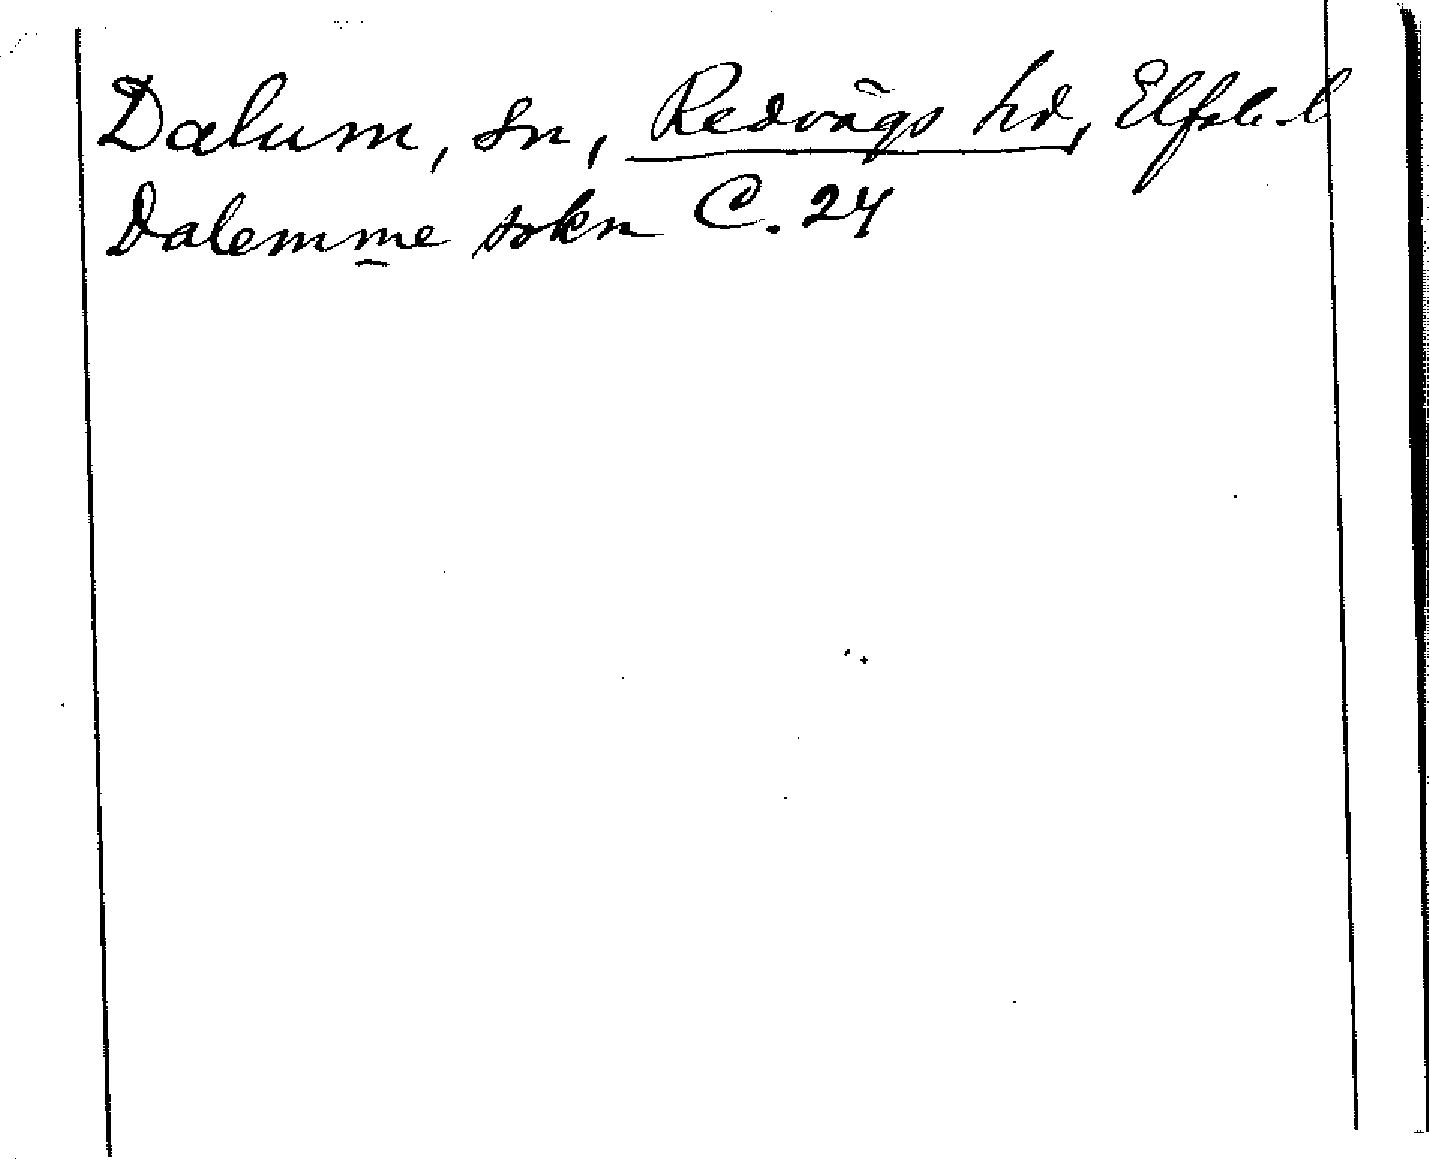 Dalum, sn, Redvägs hd, Elfsb. l
Dalemme sokn C. 24